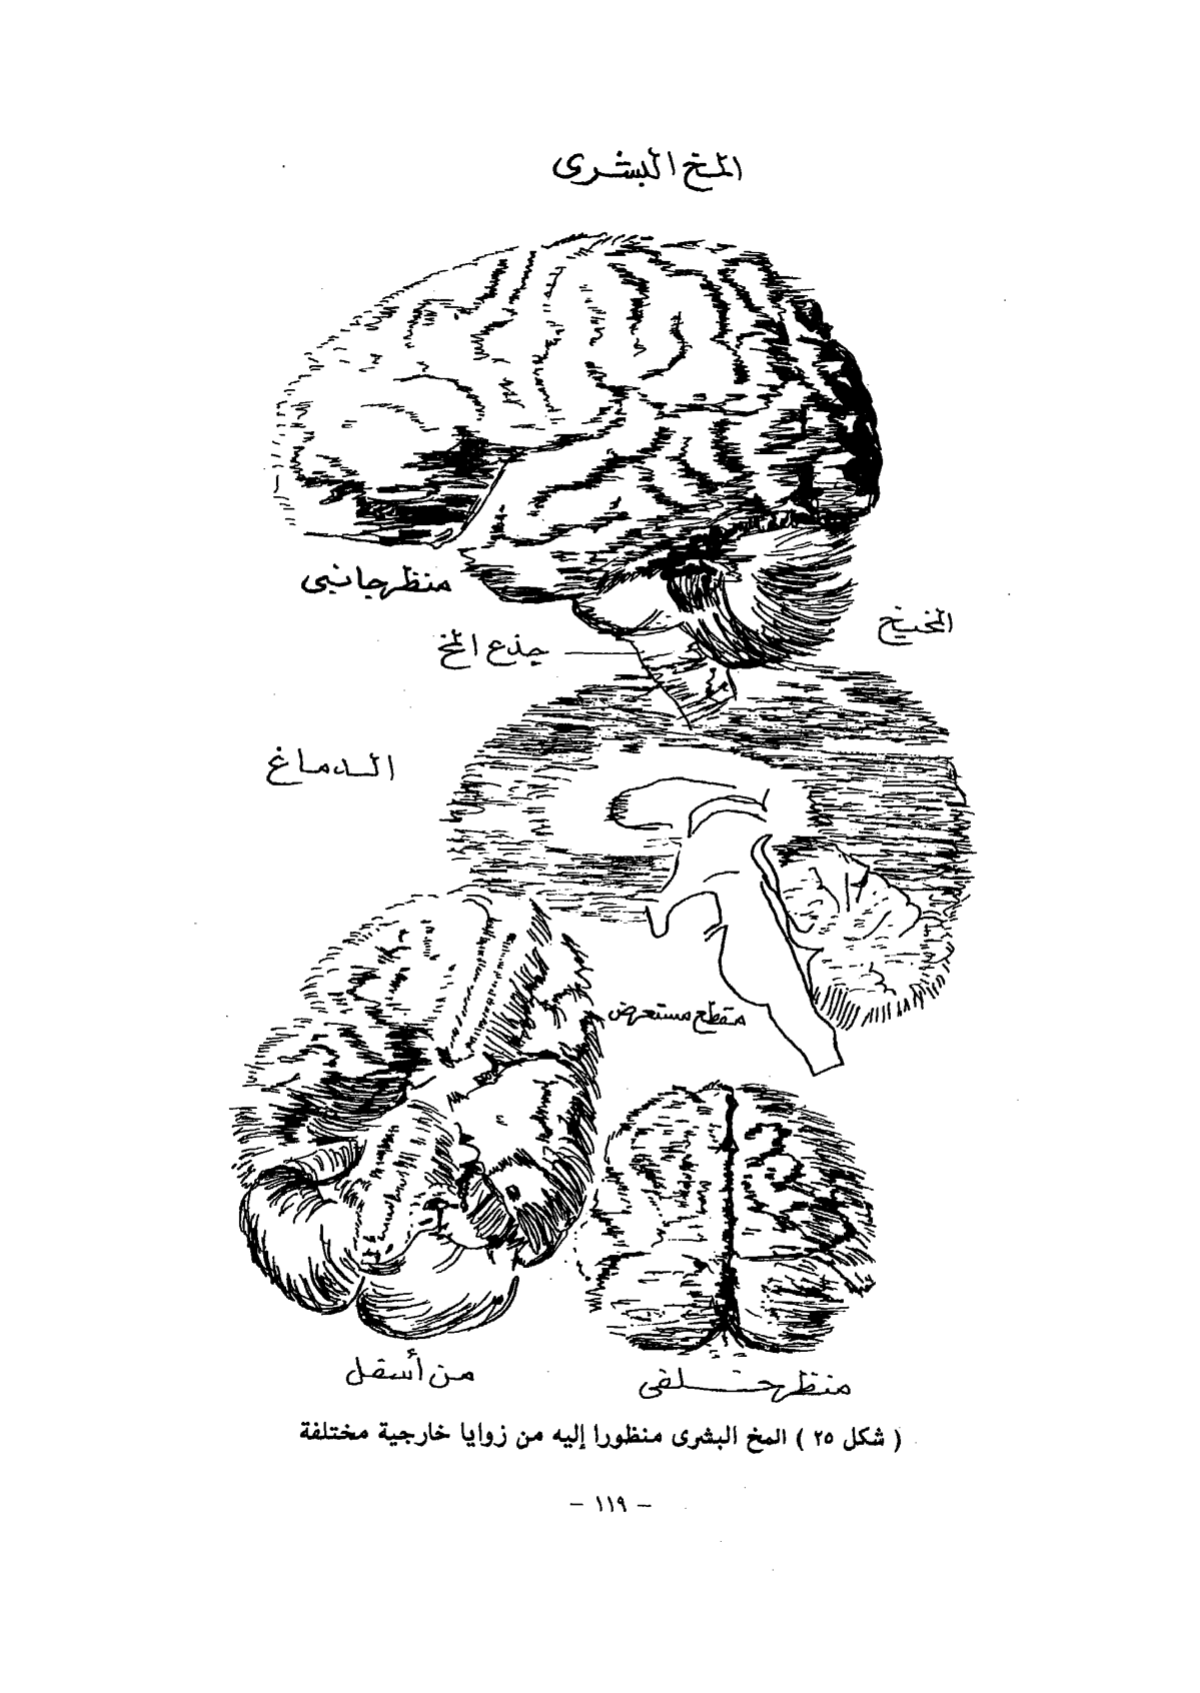 المخ البشرى
منظر جانبى
المخيخ
جذع المخ
الدماغ
مقطع مستعرض
من أسفل
منظر خلفى
( شكل ٢٥ ) المخ البشرى منظورا إليه من زوايا خارجية مختلفة
– ١١٩ –